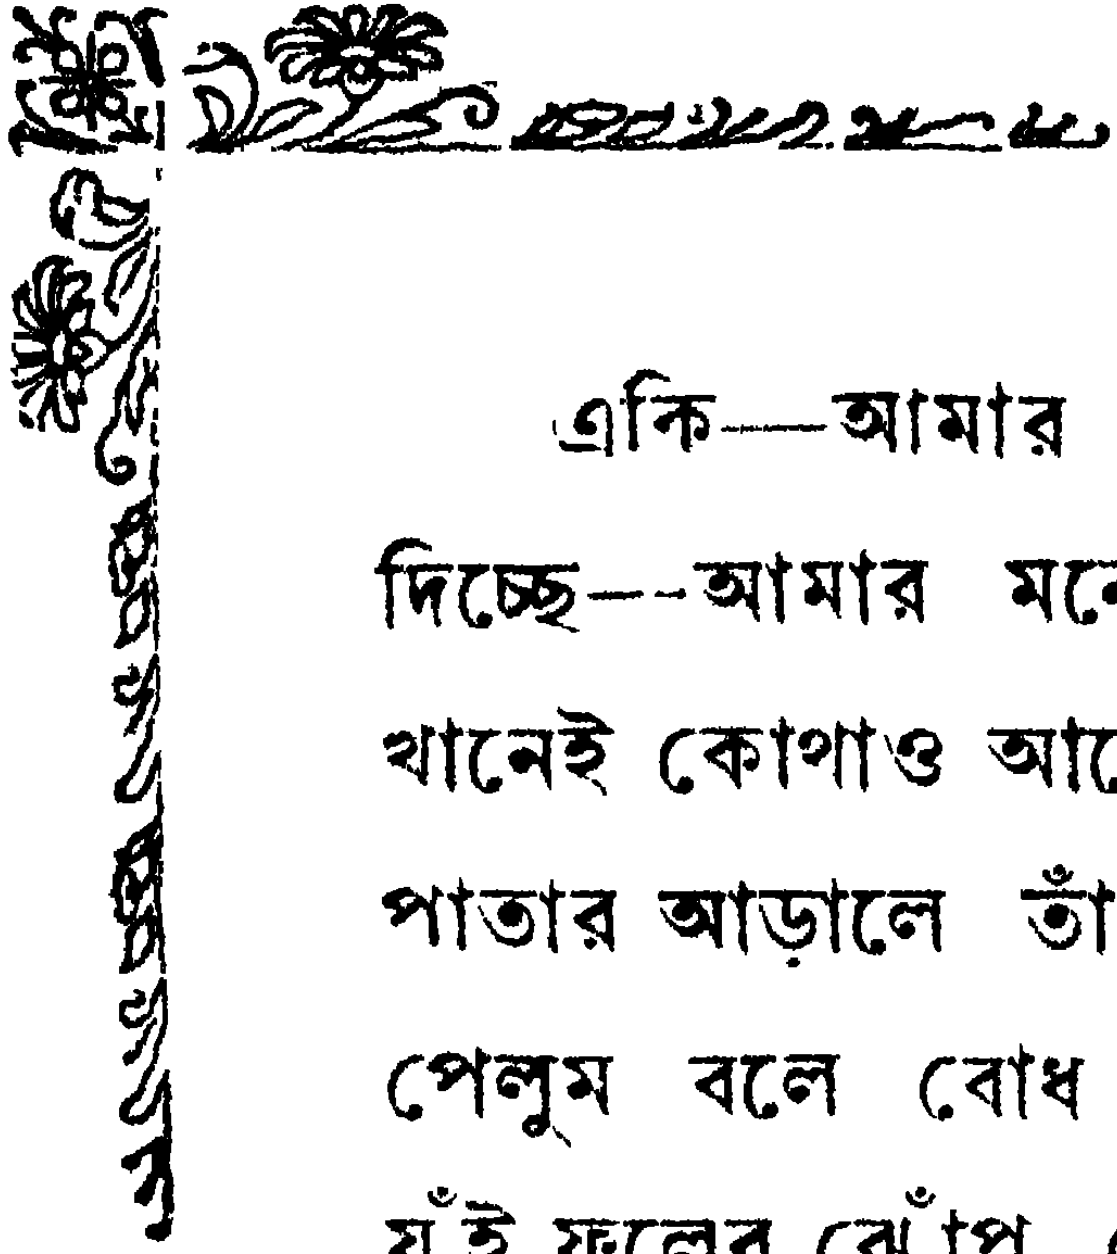 একি—আমার
দিচ্ছে—-আমার
খানেই কোথাও
পাতার আড়ালে
পেলুম বলে বোধ
যুঁই ফুলের ঝোঁপ